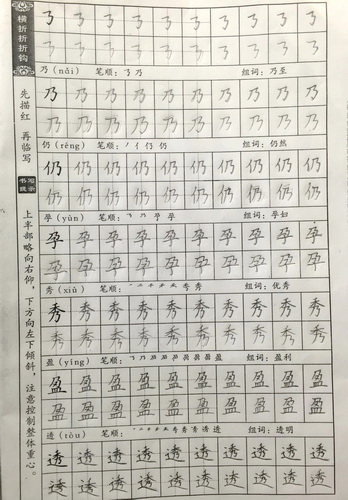 横折折折钩
先描红 再临写
书写提示
上半部略向右仰，下方向左下倾斜，注意控制整体重心。
㇡ ㇡ ㇡ ㇡ ㇡ ㇡ ㇡ ㇡ ㇡ ㇡
㇡ ㇡ ㇡ ㇡ ㇡ ㇡ ㇡ ㇡ ㇡ ㇡
乃（nǎi） 笔顺：㇡乃 组词：乃至
乃 乃 乃 乃 乃 乃 乃 乃 乃 乃
乃 乃 乃 乃 乃 乃 乃 乃 乃 乃
仍（réng） 笔顺：丿亻仍仍 组词：仍然
仍 仍 仍 仍 仍 仍 仍 仍 仍 仍
仍 仍 仍 仍 仍 仍 仍 仍 仍 仍
孕（yùn） 笔顺：㇡乃孕孕 组词：孕妇
孕 孕 孕 孕 孕 孕 孕 孕 孕 孕
孕 孕 孕 孕 孕 孕 孕 孕 孕 孕
秀（xiù） 笔顺： 组词：优秀
秀 秀 秀 秀 秀 秀 秀 秀 秀 秀
秀 秀 秀 秀 秀 秀 秀 秀 秀 秀
盈（yíng） 笔顺：㇡乃 盈 组词：盈利
盈 盈 盈 盈 盈 盈 盈 盈 盈 盈
盈 盈 盈 盈 盈 盈 盈 盈 盈 盈
透（tòu） 笔顺： 秀透透 组词：透明
透 透 透 透 透 透 透 透 透 透
透 透 透 透 透 透 透 透 透 透